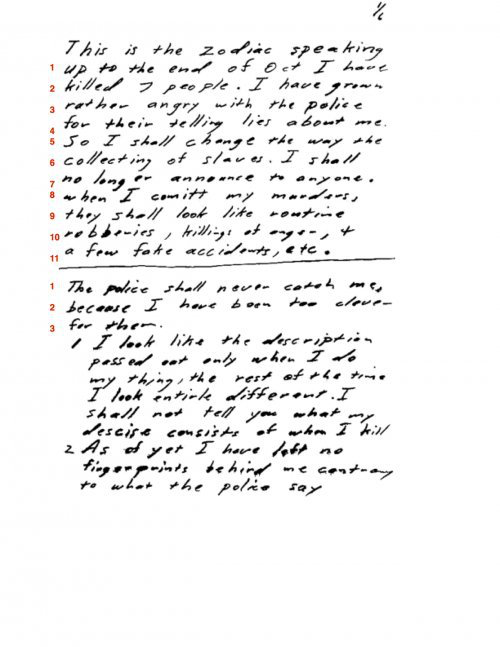 1/6
This is the zodiac speaking
1 up to the end of Oct I have
2 killed 7 people. I have grown
3 rather angry with the police
4 for their telling lies about me.
5 So I shall change the way the
6 collecting of slaves. I shall
7 no longer announce to anyone.
8 when I comitt my murders,
9 they shall look like routine
10 robberies, killings of anger, +
11 a few fake accidents, etc.
1 The police shall never catch me,
2 because I have been too clever
3 for them.
1 I look like the description
passed out only when I do
my thing, the rest of the time
I look entirle different. I
shall not tell you what my
descise consists of when I kill
2 As of yet I have left no
fingerprints behind me contrary
to what the police say